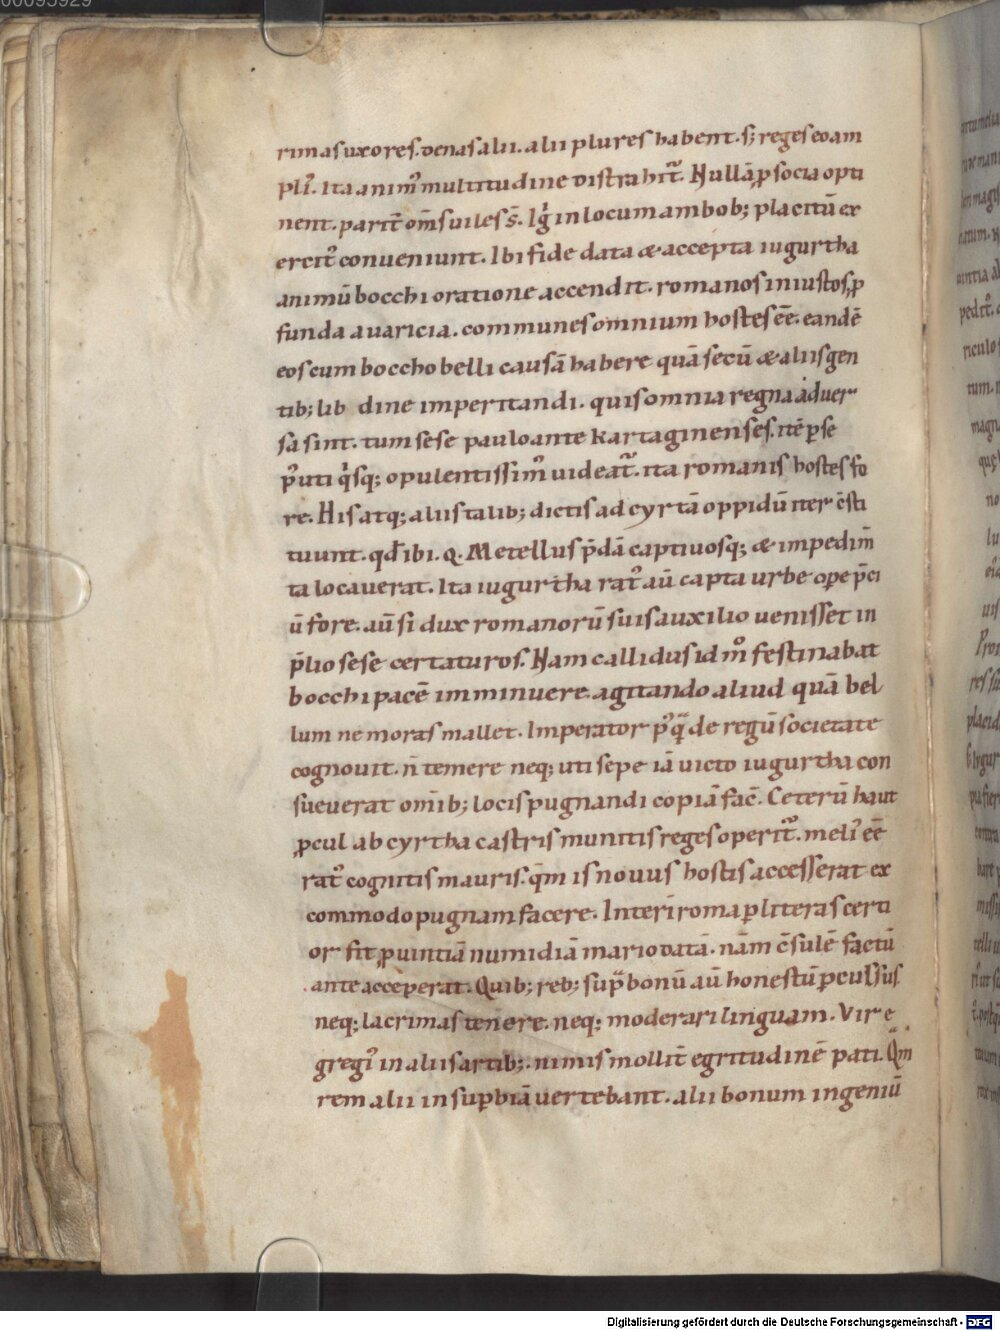 00095929
rimasuxores. denas alii. alii plures habent. s; reges eoam
pli᾿. Ita anim᾿ multitudine distrahit᷑. Nullā ꝓ socia opti
nent. parit̄ om̄s uiles s̄. Igͥ in locum ambob; placitū ex
ercit᾿ conueniunt. Ibi fide data & accepta iugurtha
animū bocchi oratione accendit. romanos iniustos, ꝓ
funda auaricia. communes omnium hostes eē. eandē
eos cum boccho belli causā habere quā secū & aliis gen
tib; lib dine imperitandi. quis omnia regna aduer
sa sint. tum sese paulo ante kartaginenses. itē ꝑse
p᾿ uti qͥsq; opulentissim᾿ uideat᷑. ita romanis hostes fo
re. His atq; aliis talib; dictis ad cyrtā oppidū iter c̄sti
tuunt. qđ ibi. Q. Metellus p̄dā captiuosq; & impedim̄
ta locauerat. Ita iugurtha rat᾿ aū capta urbe ope p̄ci
ū fore. aū si dux romanorū suis auxilio uenisset in
p̄lio sese certaturos. Nam callidus id mͦ festinabat
bocchi pacē imminuere. agitando aliud quā bel
lum ne moras mallet. Imperator p᾿qͣ de regū societate
cognouit. n̄ temere neq; uti sepe iā uicto iugurtha con
sueuerat om̄ib; locis pugnandi copiā fac̄. Ceterū haut
ꝓcul ab cyrtha castris munitis reges operit᷑. meli᾿ eē
rat᾿ cognitis mauris. qm̄ is nouus hostis accesserat ex
commodo pugnam facere. Interī roma ꝑ literas certi
or fit, ꝓuintiā numidiā mario datā. nām c̄sulē factū
ante acceperat. Quib; reb; supͣ bonū aū honestū ꝑculsus
neq; lacrimas tenere. neq; moderari linguam. Vir e
gregi᾿ in aliis artib;. nimis mollit̄ egritudinē pati. Qͣm
rem alii in supbiā uertebant. alii bonum ingeniū
Digitalisierung gefördert durch die Deutsche Forschungsgemeinschaft - DFG